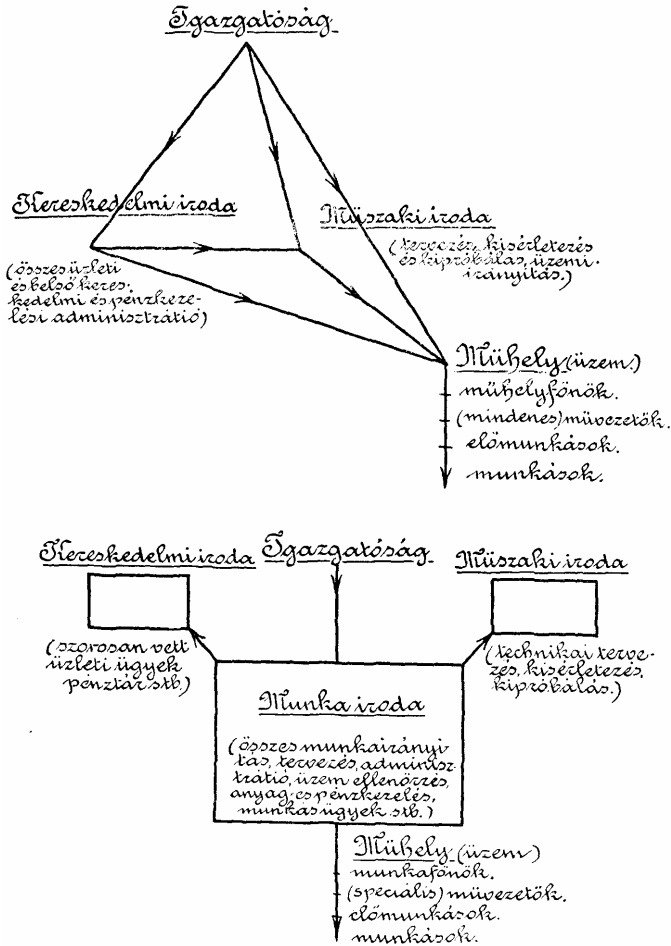 Igazgatóság
Kereskedelmi iroda
(összes üzleti
és belső keres-
kedelmi és pénzkeze-
lési adminisztrátió)
Műszaki iroda
(tervezés, kisérletezés
és kipróbálás, üzemi-
irányítás.)
Műhely (üzem.)
műhelyfőnök.
(mindenes) művezetők.
előmunkások.
munkások.
Kereskedelmi iroda
Igazgatóság
Műszaki iroda
(szorosan vett
üzleti ügyek
pénztár stb.)
(technikai terve-
zés, kisérletezés,
kipróbálás.)
Munka iroda
(összes munkairányí-
tás, tervezés, adminisz-
trátió, üzem ellenőrzés,
anyag- és pénzkezelés,
munkásügyek stb.)
Műhely (üzem)
munkafőnök.
(speciális) művezetők.
előmunkások.
munkások.